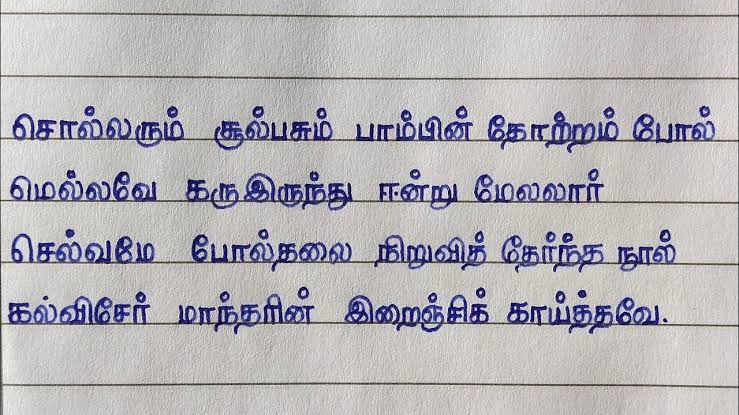 சொல்லரும் சூல்பசும் பாம்பின் தோற்றம் போல்
மெல்லவே கருஇருந்து ஈன்று மேலலார்
செல்வமே போல்தலை நிறுவித் தேர்ந்த நூல்
கல்விசேர் மாந்தரின் இறைஞ்சிக் காய்த்தவே.